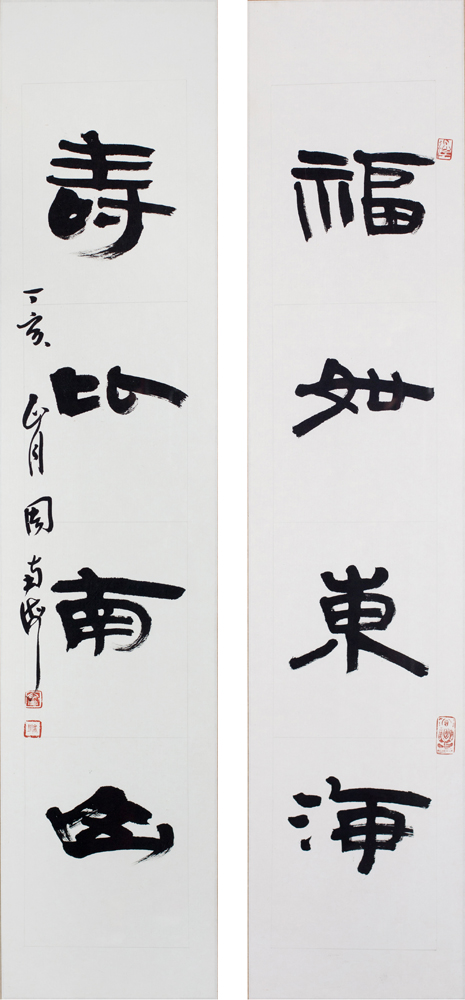 福如東海
壽比南山
丁亥正月周